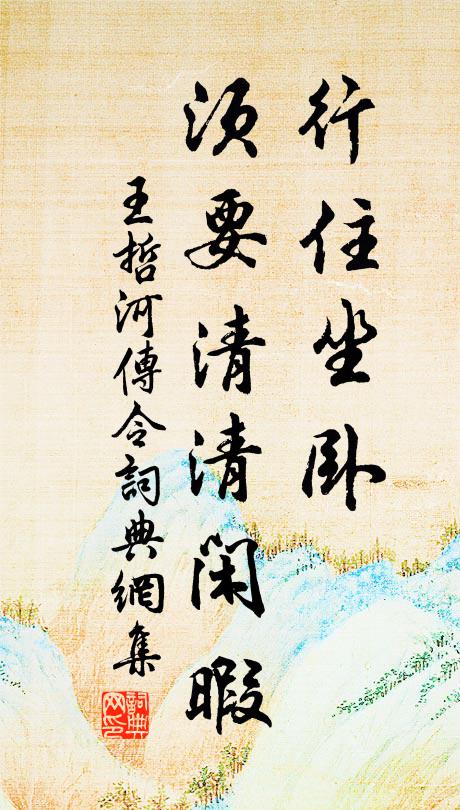 行住坐卧
須要清清閑暇
王哲河傳令詞典網集
詞典網印